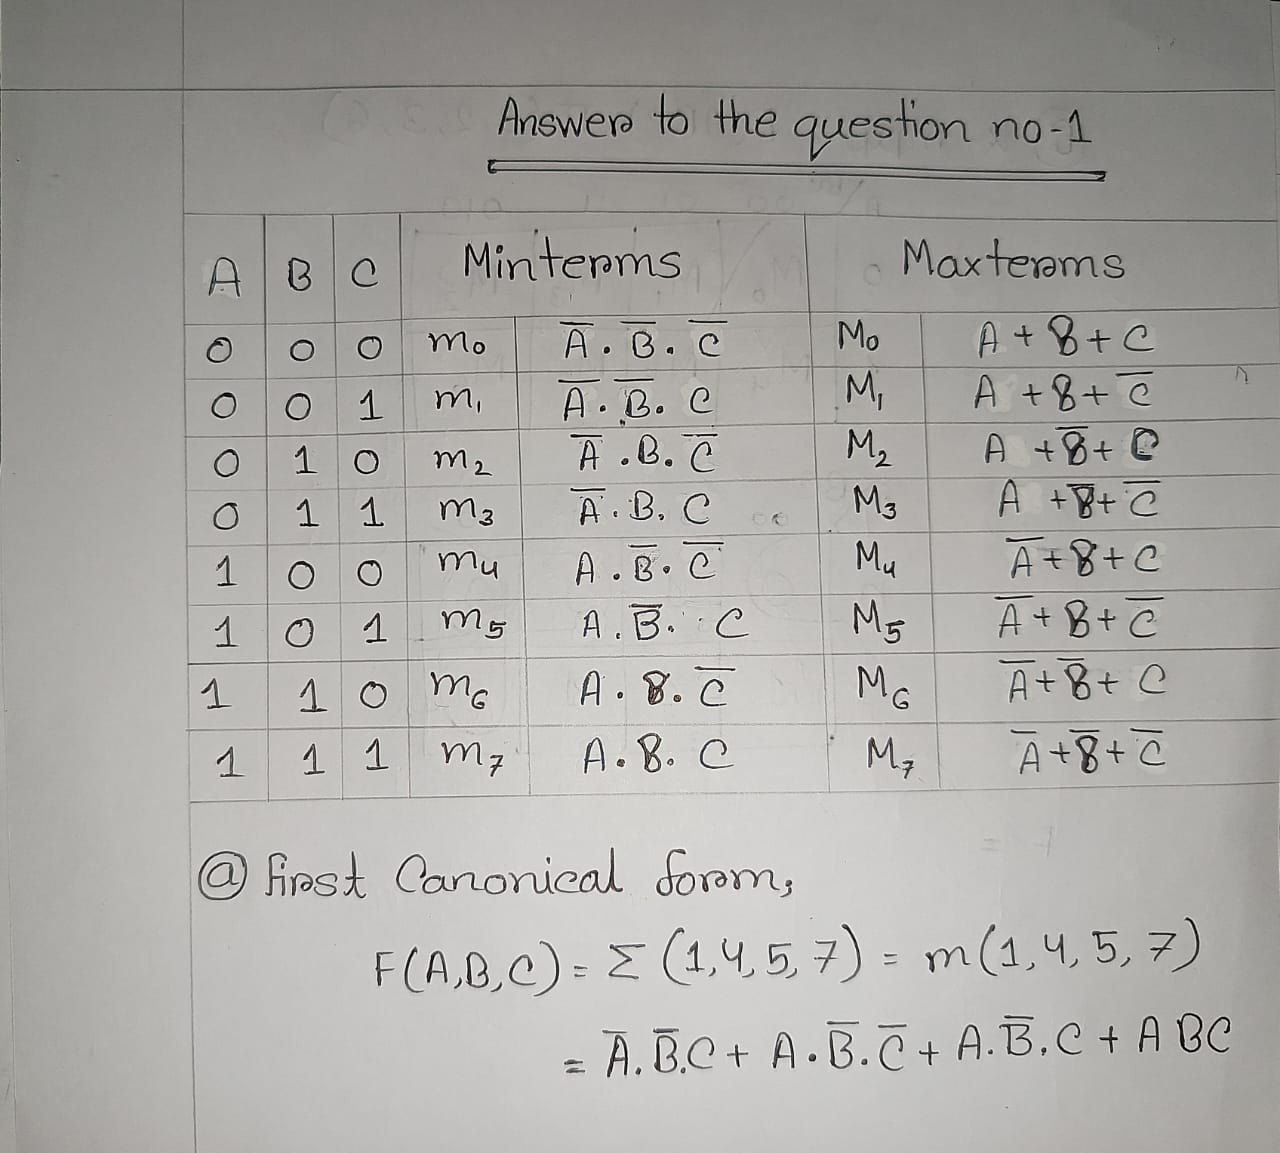 Answer to the question no-1
A B C Minterms Maxterms
0 0 0 m₀ A̅ . B̅ . C̅ M₀ A + B + C
0 0 1 m₁ A̅ . B̅ . C M₁ A + B + C̅
0 1 0 m₂ A̅ . B . C̅ M₂ A + B̅ + C
0 1 1 m₃ A̅ . B . C M₃ A + B̅ + C̅
1 0 0 m₄ A . B̅ . C̅ M₄ A̅ + B + C
1 0 1 m₅ A . B̅ . C M₅ A̅ + B + C̅
1 1 0 m₆ A . B . C̅ M₆ A̅ + B̅ + C
1 1 1 m₇ A . B . C M₇ A̅ + B̅ + C̅
ⓐ first Canonical form,
F(A,B,C) = Σ (1,4,5,7) = m(1,4,5,7)
= A̅.B̅.C + A.B̅.C̅ + A.B̅.C + A B C